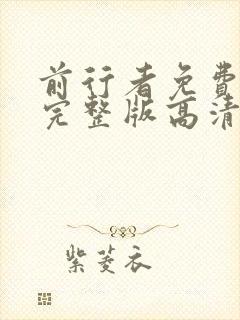 前行者免费
完整版高清
紫菱衣